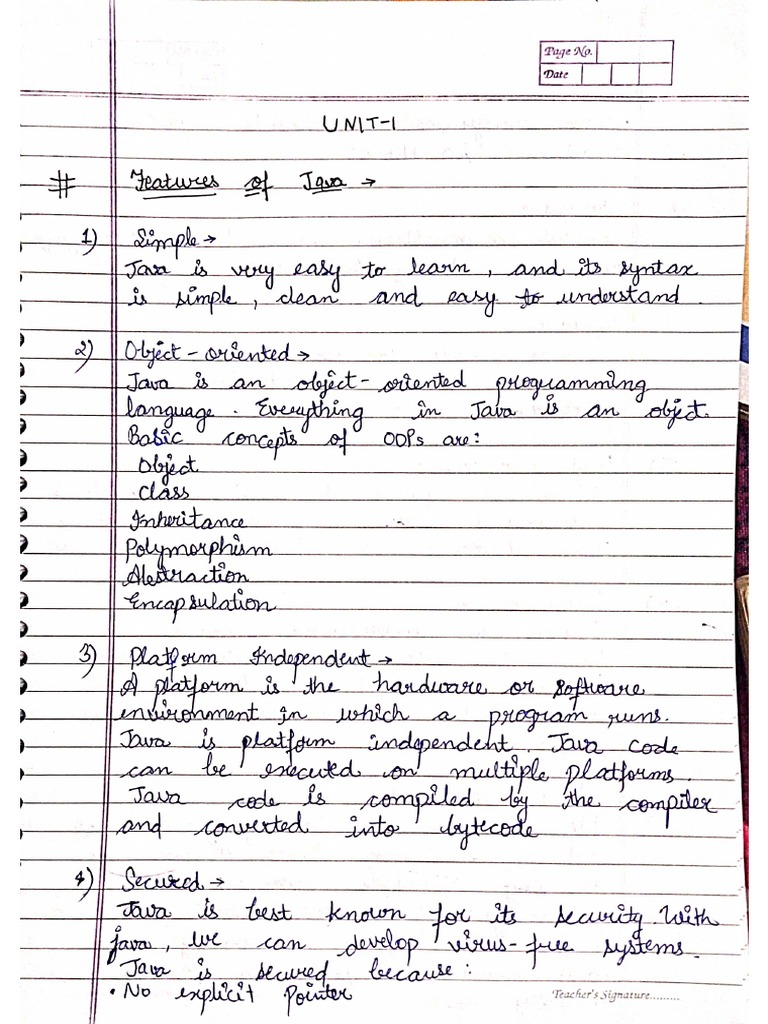 Page No.
Date
UNIT-1
# Features of Java →
1) Simple →
Java is very easy to learn, and its syntax
is simple, clean and easy to understand.
2) Object-oriented →
Java is an object-oriented programming
language. Everything in Java is an object.
Basic concepts of OOPs are:
Object
Class
Inheritance
Polymorphism
Abstraction
Encapsulation
3) Platform Independent →
A platform is the hardware or software
environment in which a program runs.
Java is platform independent. Java code
can be executed on multiple platforms.
Java code is compiled by the compiler
and converted into bytecode
4) Secured →
Java is best known for its security. With
java, we can develop virus-free systems.
Java is secured because:
• No explicit pointer
Teacher's Signature.........